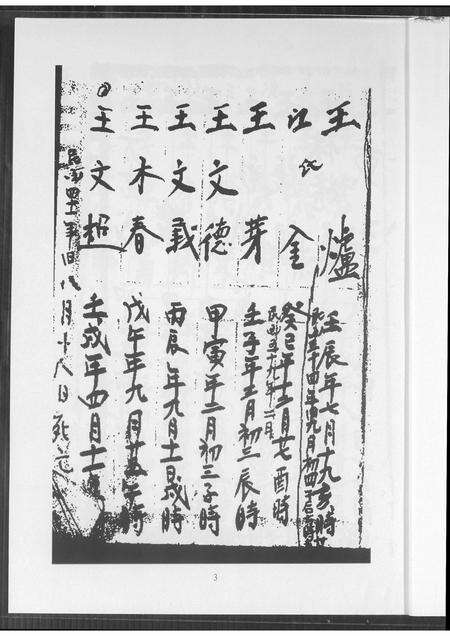 王 爐 壬辰年七月十九亥時
江氏 金 癸巳年十二月廿七酉時
民國五十九年
王 芽 壬子年三月初三辰時
王文德 甲寅年二月初三子時
王文義 丙辰年九月十一戌時
王木春 戊午年九月廿五午時
王文超 壬戌年四月十一
民國四十一年旧八月十八日死亡
3